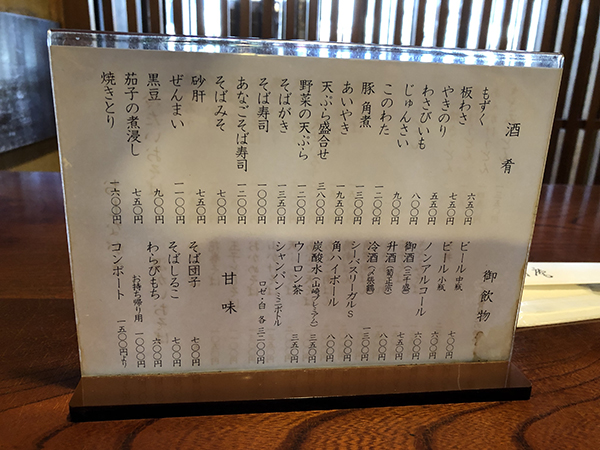 酒肴
もずく 六五〇円
板わさ 七五〇円
やきのり 五五〇円
わさびいも 八〇〇円
じゅんさい 九〇〇円
このわた 一二〇〇円
豚角煮 一三〇〇円
あいやき 一九五〇円
天ぷら盛合せ 三八〇〇円
野菜の天ぷら 一二〇〇円
そばがき 一三五〇円
そば寿司 一〇〇〇円
あなごそば寿司 一二〇〇円
そばみそ 七五〇円
砂肝 七五〇円
ぜんまい 一一〇〇円
黒豆 九〇〇円
茄子の煮浸し 七五〇円
焼きとり 一六〇〇円
御飲物
ビール 中瓶 七〇〇円
ビール 小瓶 六〇〇円
ノンアルコール 六〇〇円
御酒（三千盛） 六〇〇円
升酒（菊正宗） 七五〇円
冷酒（〆張鶴） 八〇〇円
シーバスリーガルS 一三〇〇円
角ハイボール 八〇〇円
炭酸水（山崎プレミアム） 三五〇円
ウーロン茶 三五〇円
シャンパン ミニボトル
ロゼ・白 各三二〇〇円
甘味
そば団子 七〇〇円
そばしるこ 七〇〇円
わらびもち 六〇〇円
お持ち帰り用 一〇〇〇円
コンポート 一五〇〇円より